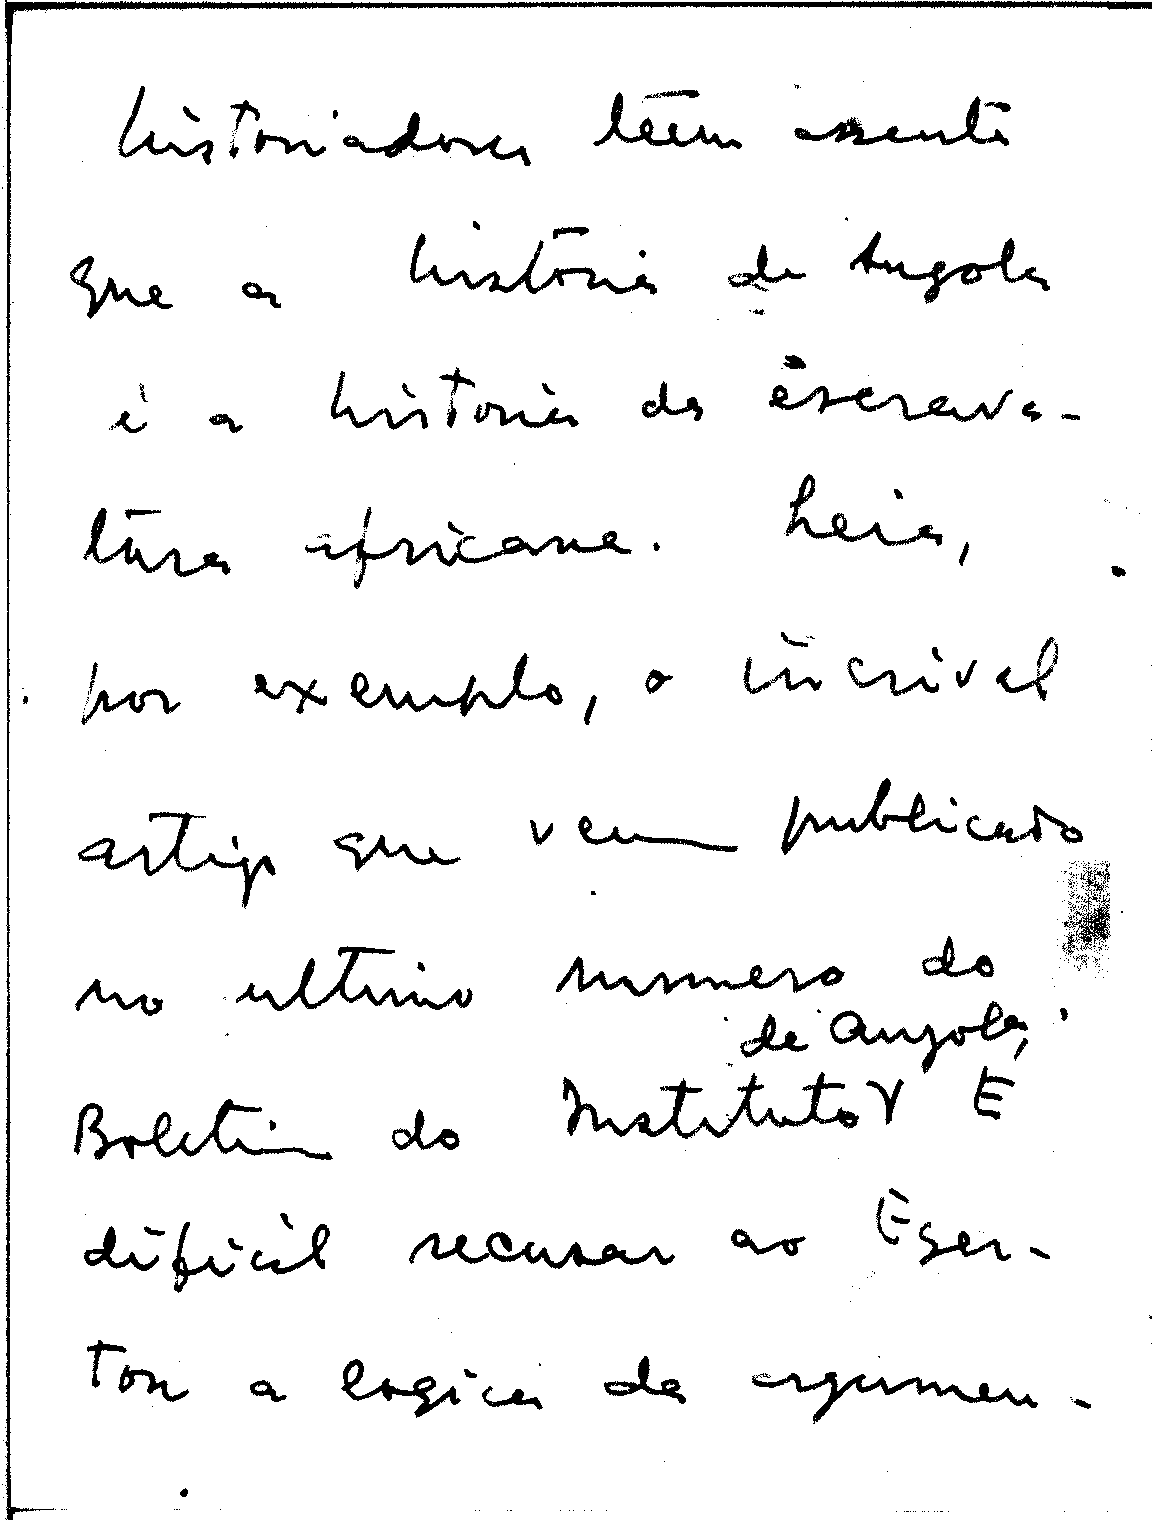 historiadores têem assente
que a história de Angola
é a historia da escrava-
tura africana. Leia,
por exemplo, o incrivel
artigo que vem publicado
no ultimo numero do
de Angola,
Boletim do Instituto V E
dificil recusar ao Eger-
ton a logica da argumen-